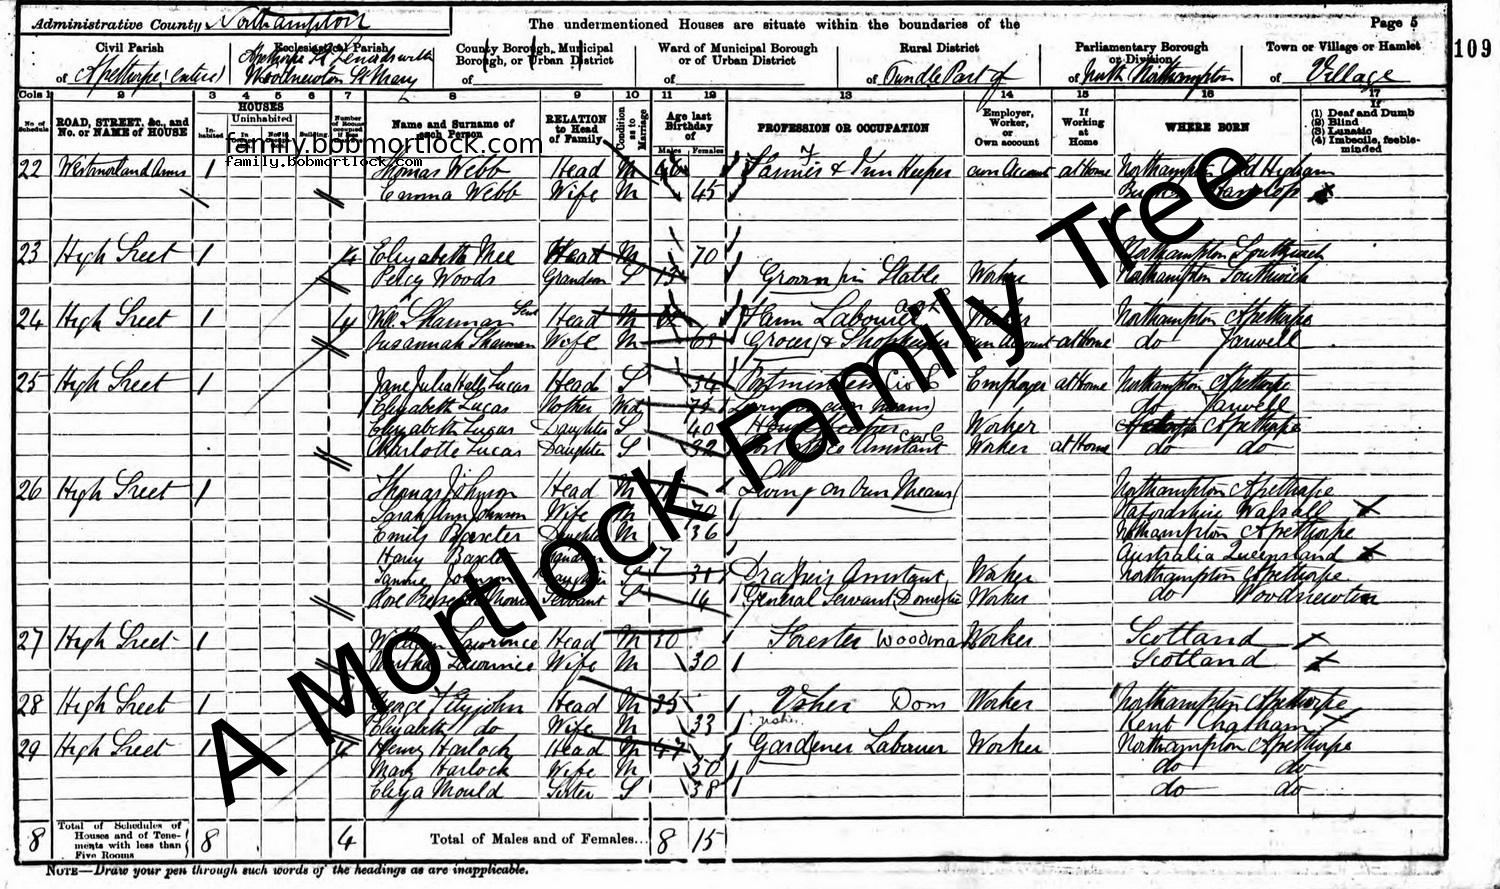 Administrative County Northampton
The undermentioned Houses are situate within the boundaries of the
Page 5
109
Civil Parish
of Apethorpe (entire)
Ecclesiastical Parish
Apethorpe St Lenards with
Woodnewton St Mary
County Borough, Municipal
Borough, or Urban District
of
Ward of Municipal Borough
or of Urban District
of
Rural District
of Oundle Part of
Parliamentary Borough
or Division
of North Northampton
Town or Village or Hamlet
of Village
Cols 1 2 3 4 5 6 7 8 9 10 11 12 13 14 15 16 17
No. of Schedule
ROAD, STREET, &c., and No. or NAME of HOUSE
HOUSES
Inhabited
Uninhabited
Building
Name and Surname of each Person
RELATION to Head of Family
Condition as to Marriage
Age last Birthday of
Males Females
PROFESSION OR OCCUPATION
Employer, Worker, or Own account
If Working at Home
WHERE BORN
If
(1) Deaf and Dumb
(2) Blind
(3) Lunatic
(4) Imbecile, feeble-minded
family.bobmortlock.com
family.bobmortlock.com
22 Westmorland Arms 1 Thomas Webb Head M Farmer & Inn Keeper own Account at Home Northampton Cold Higham
Emma Webb Wife M 45
23 High Street 1 4 Elizabeth Mee Head 70 Northampton Southwick
Percy Woods Grandson S 13 Groom in Stable Worker Northampton Southwick
24 High Street 1 4 Wm Sharman Senr Head M Farm Labourer Worker Northampton Apethorpe
Susannah Sharman Wife M Grocer & Shopkeeper own Account at Home do Yarwell
25 High Street 1 Jane Julia Hall Lucas Head S 34 Postmistress Civil Employer at Home Northampton Apethorpe
Elizabeth Lucas Mother Wd Living on own means do Yarwell
Elizabeth Lucas Daughter S 40 House Keeper Worker Apethorpe
Charlotte Lucas Daughter S 32 Post Office Assistant Worker at Home do do
26 High Street 1 Thomas Johnson Head M Living on Own Means Northampton Apethorpe
Sarah Ann Johnson Wife M 70 Staffordshire Walsall
Emily Baxter Daughter M 36 Northampton Apethorpe
Harry Baxter 7 Australia Queensland
Johnson Daughter S 31 Drapers Assistant Worker Northampton Apethorpe
Rose Servant S 14 General Servant Domestic Worker do Woodnewton
27 High Street 1 William Lawrence Head M 30 Forester Woodman Worker Scotland
Martha Lawrence Wife M 30 Scotland
28 High Street 1 George Head M 35 Usher Dom Worker Northampton Apethorpe
Elizabeth do Wife M 33 Kent Chatham
29 High Street 1 4 Henry Harlock Head M 47 Gardener Labourer Worker Northampton Apethorpe
Mary Harlock Wife M 50 do do
Eliza Mould Sister S 38 do do
8 Total of Schedules of Houses and of Tenements with less than Five Rooms 8 4 Total of Males and of Females... 8 15
NOTE—Draw your pen through such words of the headings as are inapplicable.
A Mortlock Family Tree